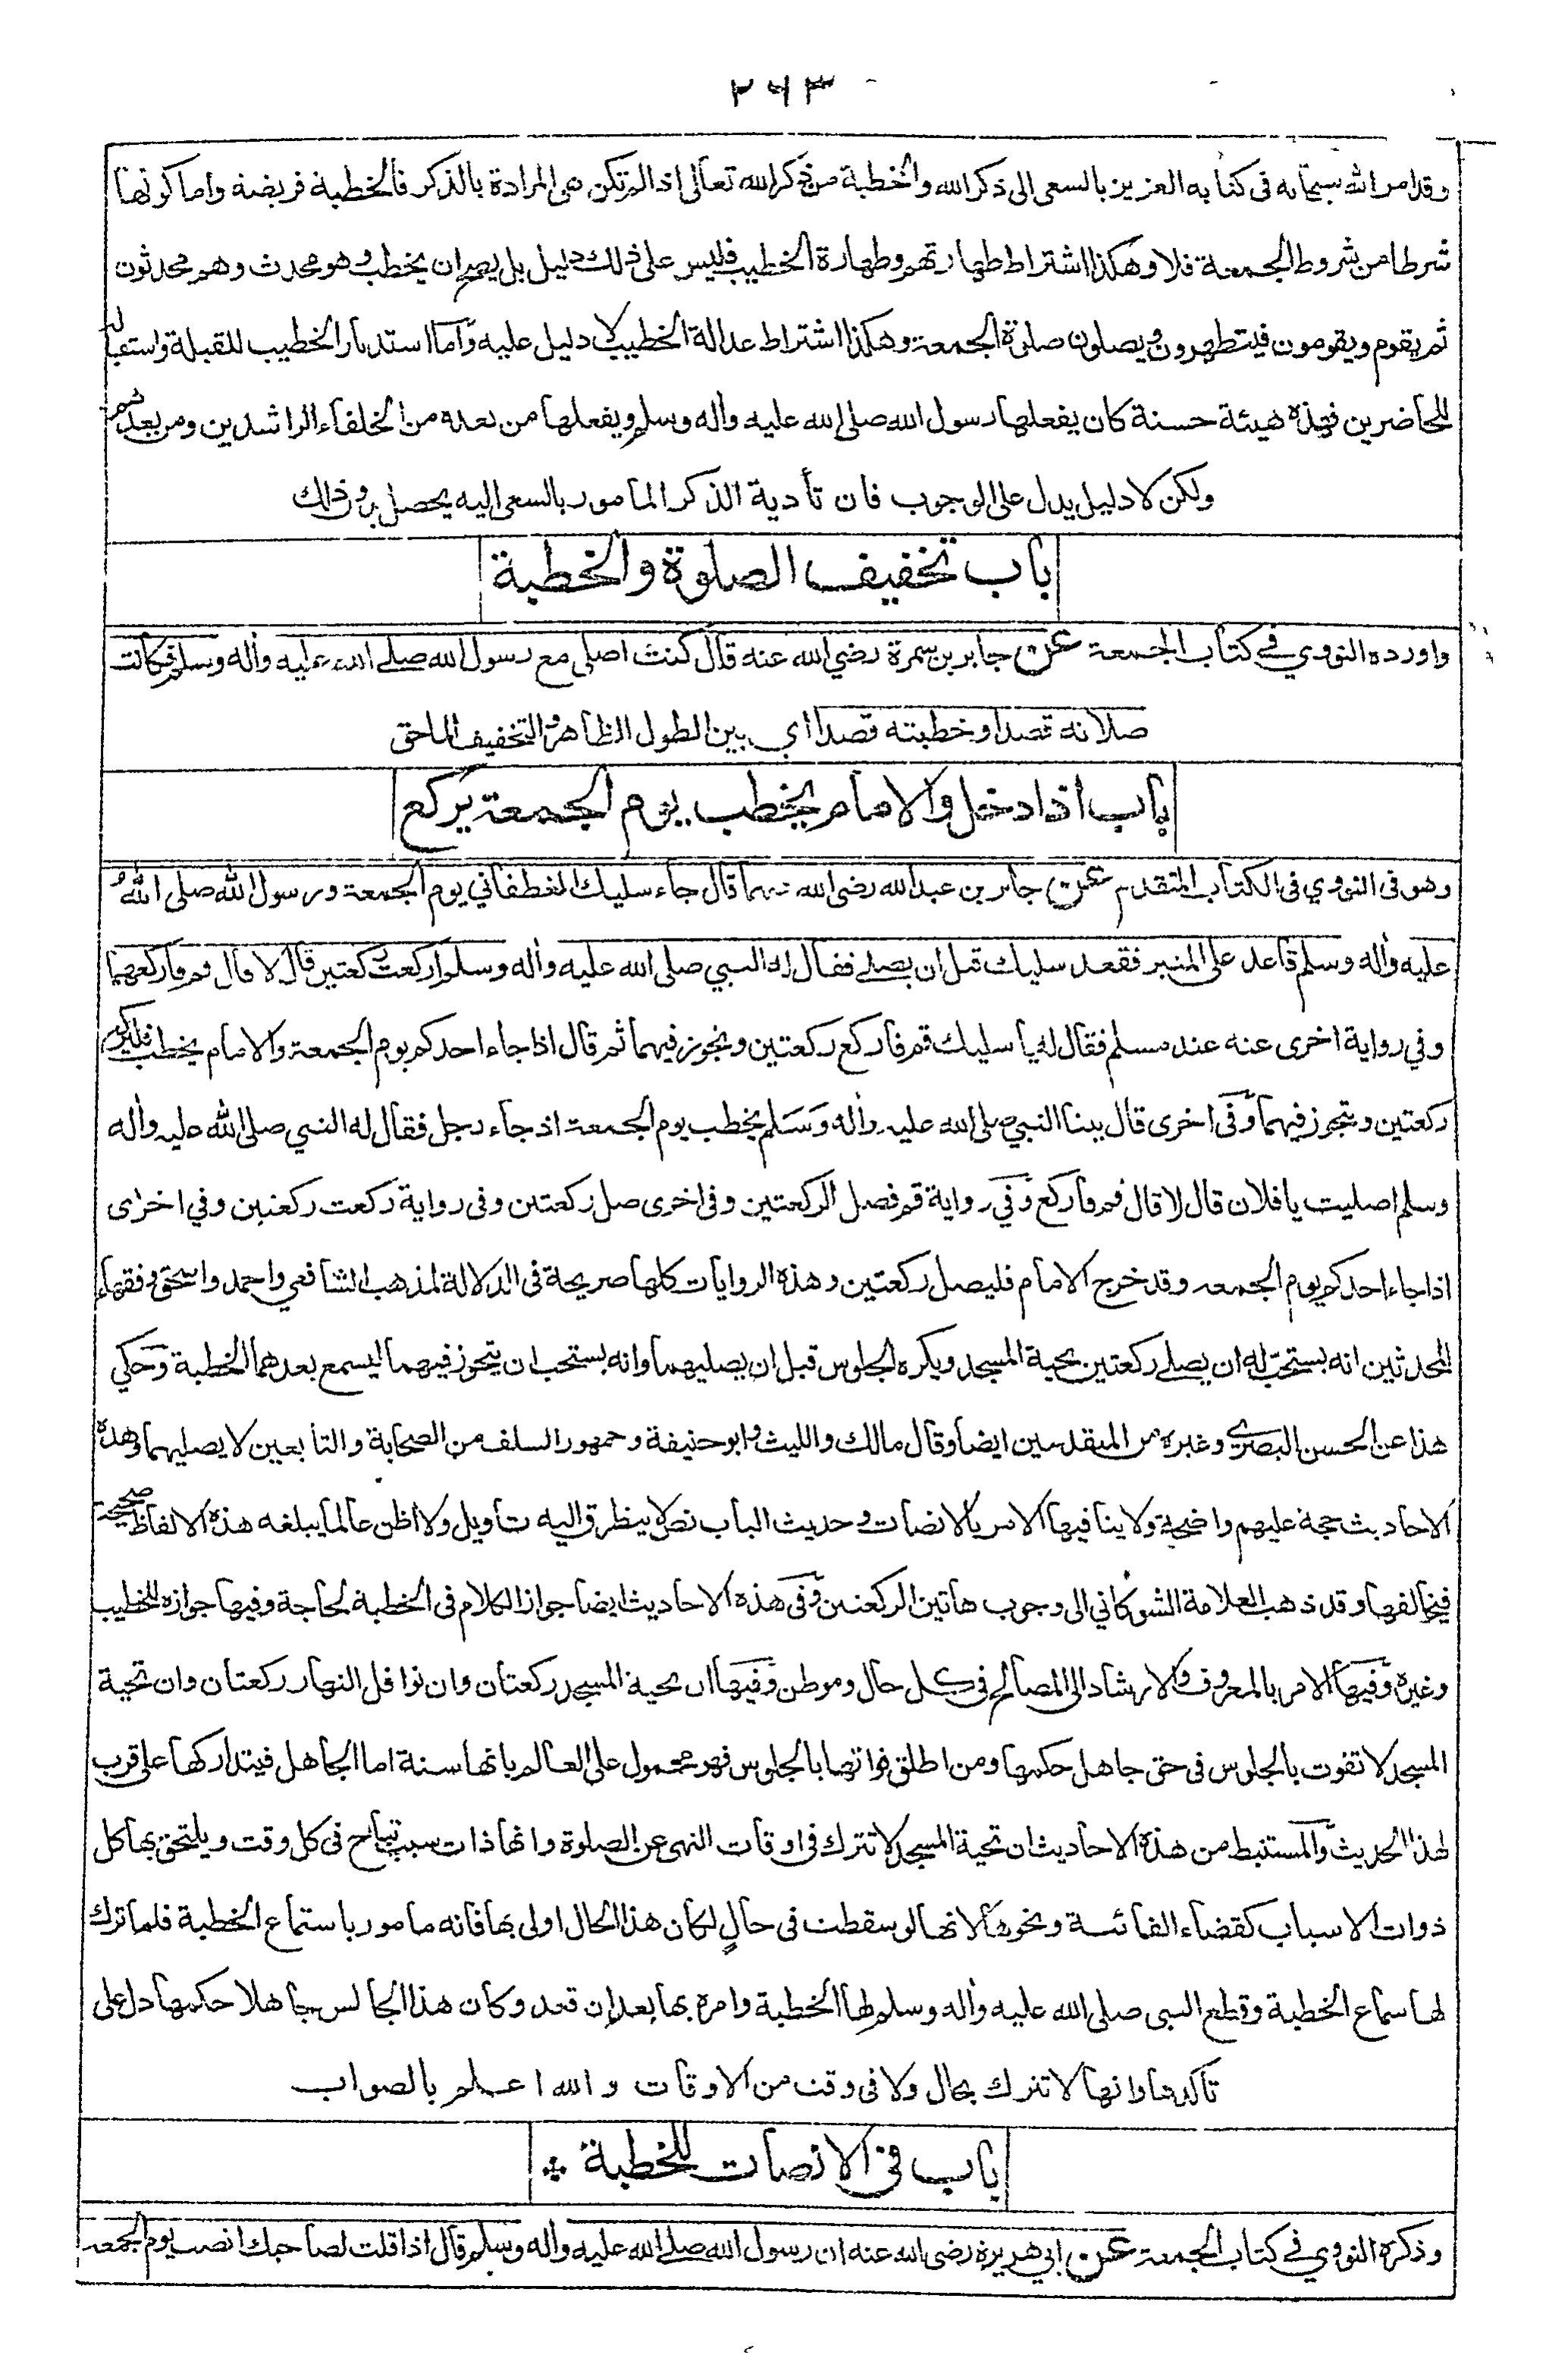 ٢٦٣
وقد امر الله سبحانه فى كتابه العزيز بالسعى الى ذكر الله والخطبة من ذكر الله تعالى اذا لم تكن هى المرادة بالذكر فالخطبة فريضة واما كونها
شرطا من شروط الجمعة فلا وهكذا اشتراط طهارتهم وطهارة الخطيب فليس على ذلك دليل بل يصح ان يخطب وهو محدث وهم محدثون
ثم يقوم ويقومون فيتطهرون ويصلون صلوة الجمعة وهكذا اشتراط عدالة الخطيب لا دليل عليه وأما استدبار الخطيب للقبلة واستقباله
للحاضرين فهذه هيئة حسنة كان يفعلها رسول الله صلى الله عليه وأله وسلم ويفعلها من بعده من الخلفاء الراشدين ومن بعدهم
ولكن لا دليل يدل على الوجوب فان تأدية الذكر المامور بالسعى اليه يحصل بدون ذلك
باب تخفيف الصلوة والخطبة
واورده النووي في كتاب الجمعة عن جابر بن سمرة رضي الله عنه قال كنت اصلى مع رسول الله صلے الله عليه وأله وسلم فكانت
صلاته قصدا وخطبته قصدا اي بين الطول الظاهر والتخفيف الماحق
باب اذا دخل والامام يخطب يوم الجمعة يركع
وهو فى النووي فى الكتاب المتقدم عن جابر بن عبد الله رضى الله عنهما قال جاء سليك الغطفاني يوم الجمعة ورسول الله صلى اللهُ
عليه وأله وسلم قاعد على المنبر فقعد سليك قبل ان يصلے فقال له النبي صلى الله عليه وأله وسلم اركعت ركعتين قال لا قال قم فاركعهما
وفي رواية اخرى عنه عند مسلم فقال له يا سليك قم فاركع ركعتين وتجوز فيهما ثم قال اذا جاء احدكم يوم الجمعة والامام يخطب فليركع
ركعتين ويتجوز فيهما وفى اخرى قال بينا النبي صلى الله عليه وأله وَسَلم يخطب يوم الجمعة اذ جاء رجل فقال له النبي صلى الله عليه وأله
وسلم اصليت يا فلان قال لا قال قم فاركع وفي رواية قم فصل الركعتين وفى اخرى صل ركعتين وفى رواية ركعت ركعتين وفي اخرى
اذا جاء احدكم يوم الجمعة وقد خرج الامام فليصل ركعتين وهذه الروايات كلها صريحة فى الدلالة لمذهب الشافعي واحمد واسحق وفقهاء
المحدثين انه يستحب له ان يصلے ركعتين تحية المسجد ويكره الجلوس قبل ان يصليهما وانه يستحب ان يتجوز فيهما ليسمع بعدهما الخطبة وحكي
هذا عن الحسن البصري وغيره من المتقدمين ايضا وقال مالك والليث وابو حنيفة وجمهور السلف من الصحابة والتابعين لا يصليهما وهذه
الاحاديث حجة عليهم واضحة ولا ينافيها الامر بالانصات وحديث الباب نص لا يتطرق اليه تاويل ولا اظن عالما يبلغه هذه الالفاظ صحيحة
فيخالفها وقد ذهب العلامة الشوكاني الى وجوب هاتين الركعتين وفى هذه الاحاديث ايضا جواز الكلام فى الخطبة لحاجة وفيها جوازه للخطيب
وغيره وفيها الامر بالمعروف والارشاد الى المصالح فى كل حال وموطن وفيها ان تحية المسجد ركعتان وان نوافل النهار ركعتان وان تحية
المسجد لا تفوت بالجلوس فى حق جاهل حكمها ومن اطلق فواتها بالجلوس فهو محمول على العالم بانها سنة اما الجاهل فيتداركها على قرب
لهذا الحديث والمستنبط من هذه الاحاديث ان تحية المسجد لا تترك فى اوقات النهى عن الصلوة وانها ذات سبب تباح فى كل وقت ويلتحق بها كل
ذوات الاسباب كقضاء الفائتة ونحوها لانها لو سقطت فى حالٍ لكان هذا الحال اولى بها فانه مامور باستماع الخطبة فلما ترك
لها سماع الخطبة وقطع النبى صلى الله عليه وأله وسلم لها الخطبة وامره بها بعد ان قعد وكان هذا الجالس جاهلا حكمها دل على
تأكدها وانها لا تترك بحال ولا فى وقت من الاوقات والله اعلم بالصواب
باب فى الانصات للخطبة
وذكره النووي في كتاب الجمعة عن ابي هريرة رضى الله عنه ان رسول الله صلے الله عليه وأله وسلم قال اذا قلت لصاحبك انصت يوم الجمعة